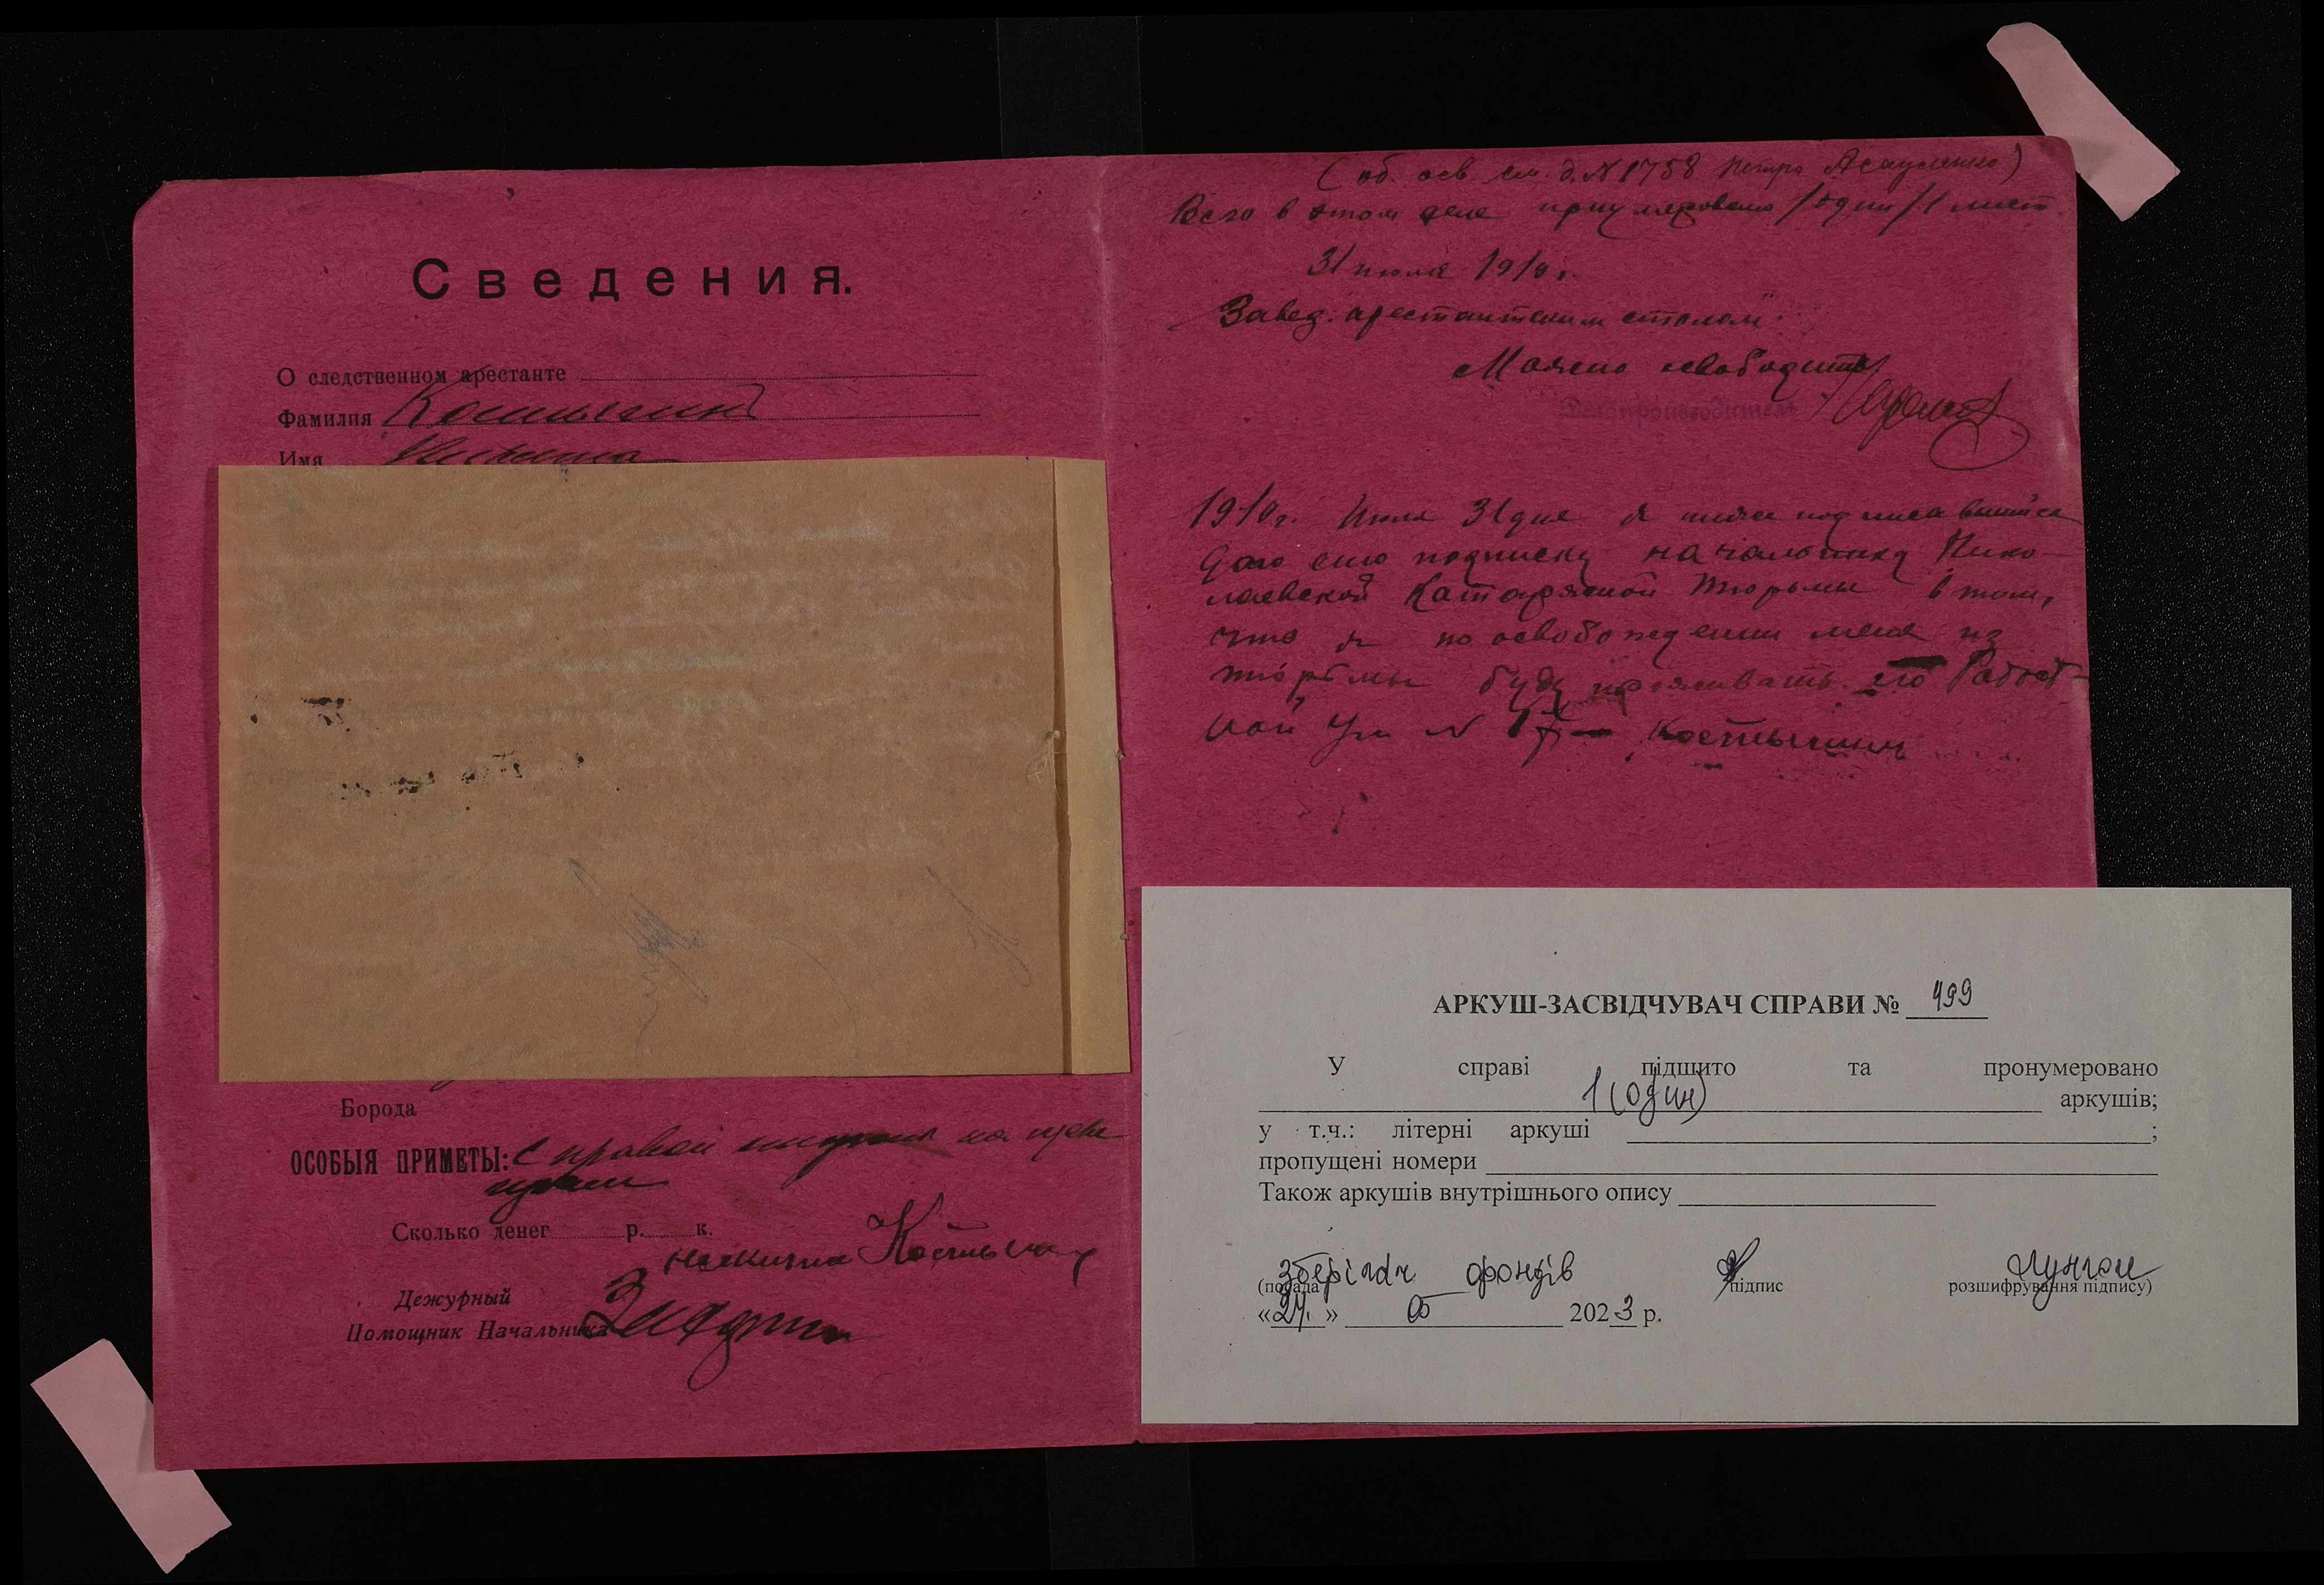 Сведения.
О следственном арестанте
Фамилия Костыгинъ
Имя Никита
Борода
ОСОБЫЯ ПРИМЕТЫ: С правой на щеке
Сколько денег р. к.
Никита Костыгин
Дежурный
Помощник Начальника
(об. осв. см. д. N 1758 Петра Асауленко)
Всего в этом деле пронумеровано /один/ 1 лист
31 июля 1919 г.
Завед. арестантским столом
Можно освободить
Делопроизводитель
1919 г. Июля 31 дня я ниже подписавшийся
даю сию подписку начальнику Нико-
лаевской Каторжной тюрьмы в том,
что я по освобождении меня из
тюрьмы буду проживать по
ной ул N Костыгин
АРКУШ-ЗАСВІДЧУВАЧ СПРАВИ № 499
У справі підшито та пронумеровано
1 (один) аркушів;
у т.ч.: літерні аркуші ;
пропущені номери
Також аркушів внутрішнього опису
зберігач фондів
(посада підпис розшифрування підпису)
«24.» 05 2023 р.